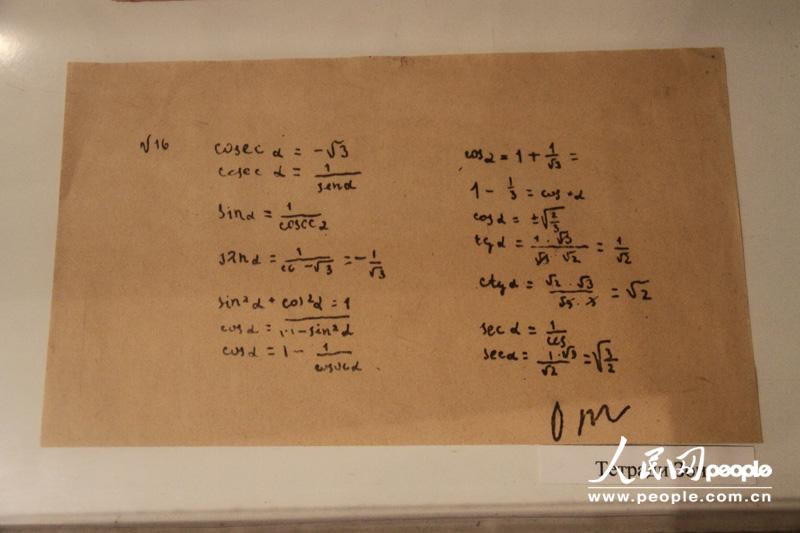 √16
cosec α = -√3
cosec α = 1/senα
sinα = 1/cosec α
sinα = 1/-√3 = -1/√3
sin²α + cos²α = 1
cosα = √1-sin²α
cosα = 1 - 1/cosecα
cosα = 1 + 1/√3 =
1 - 1/3 = cos α
cosα = ±√2/3
tgα = 1·√3/√3·√2 = 1/√2
ctgα = √2·√3/√3 = √2
sec α = 1/cos
secα = 1·√3/√2 = √3/2
Тетради
人民网 people
www.people.com.cn